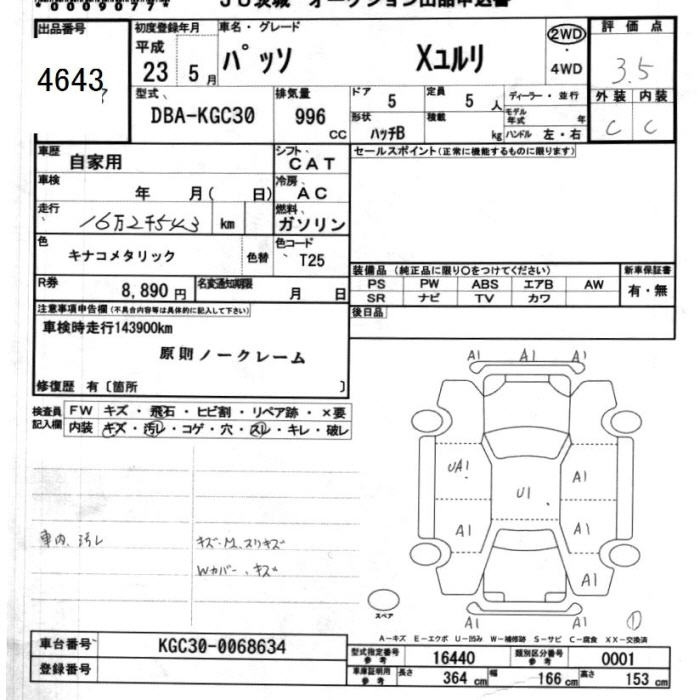 JU茨城 オークション出品申込書
出品番号 初度登録年月 車名・グレード 評価点
4643 平成 23 5月 パッソ Xユルリ 2WD ・ 4WD 3.5
型式 排気量 ドア 定員 ディーラー・並行 外装 内装
DBA-KGC30 996 CC 5 5 人 モデル年式 年 C C
形状 ハッチB 積載 kg ハンドル 左・右
車歴 自家用 シフト CAT セールスポイント(正常に機能するものに限ります)
車検 年 月( 日) 冷房 AC
走行 16万2千543 km 燃料 ガソリン
色 キナコメタリック 色替 色コード T25
装備品 (純正品に限り○をつけてください) 新車保証書
R券 8,890円 名変通知期限 月 日 PS PW ABS エアB AW 有・無
SR ナビ TV カワ
注意事項申告欄(不具合内容等は具体的に記入して下さい) 後日品
車検時走行143900km
原則ノークレーム
修復歴 有〔箇所 〕
検査員記入欄 FW キズ・飛石・ヒビ割・リペア跡・×要
内装 キズ・汚レ・コゲ・穴・スレ・キレ・破レ
A1 A1 A1
UA1 A1
U1
A1 A1
車内、汚レ キズ・M、スリキズ
Wカバー、キズ A1
スペア ①
A1 A1 A1
A-キズ E-エクボ U-凹み W-補修跡 S-サビ C-腐食 XX-交換済
車台番号 KGC30-0068634 型式指定番号 参考 16440 類別区分番号 参考 0001
登録番号 車庫証明用 参考 長さ 364 cm 幅 166 cm 高さ 153 cm